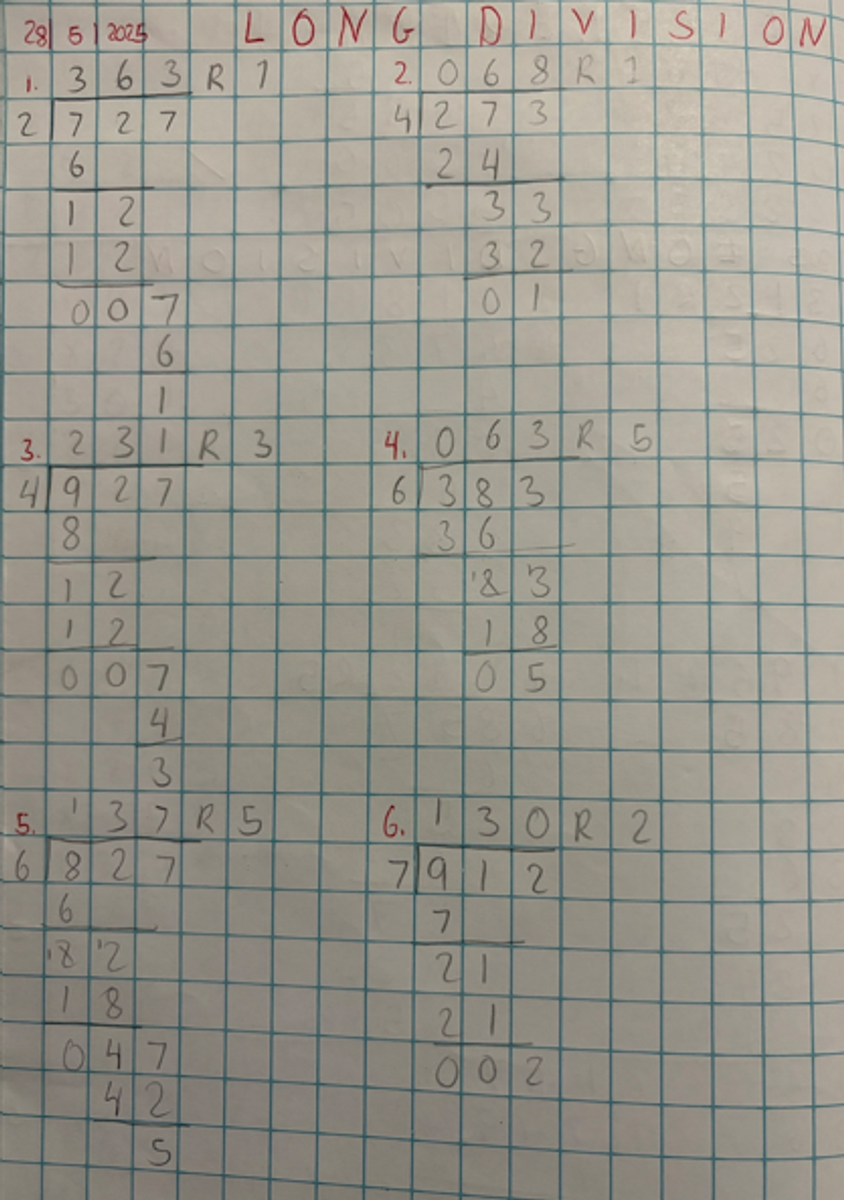 28|5|2025 LONG DIVISION
1. 363 R 1
2 727
6
12
12
007
6
1
2. 068 R 1
4 273
24
33
32
01
3. 231 R 3
4 927
8
12
12
007
4
3
4. 063 R 5
6 383
36
'8'3
18
05
5. 137 R 5
6 827
6
'8'2
18
047
42
5
6. 130 R 2
7 912
7
21
21
002